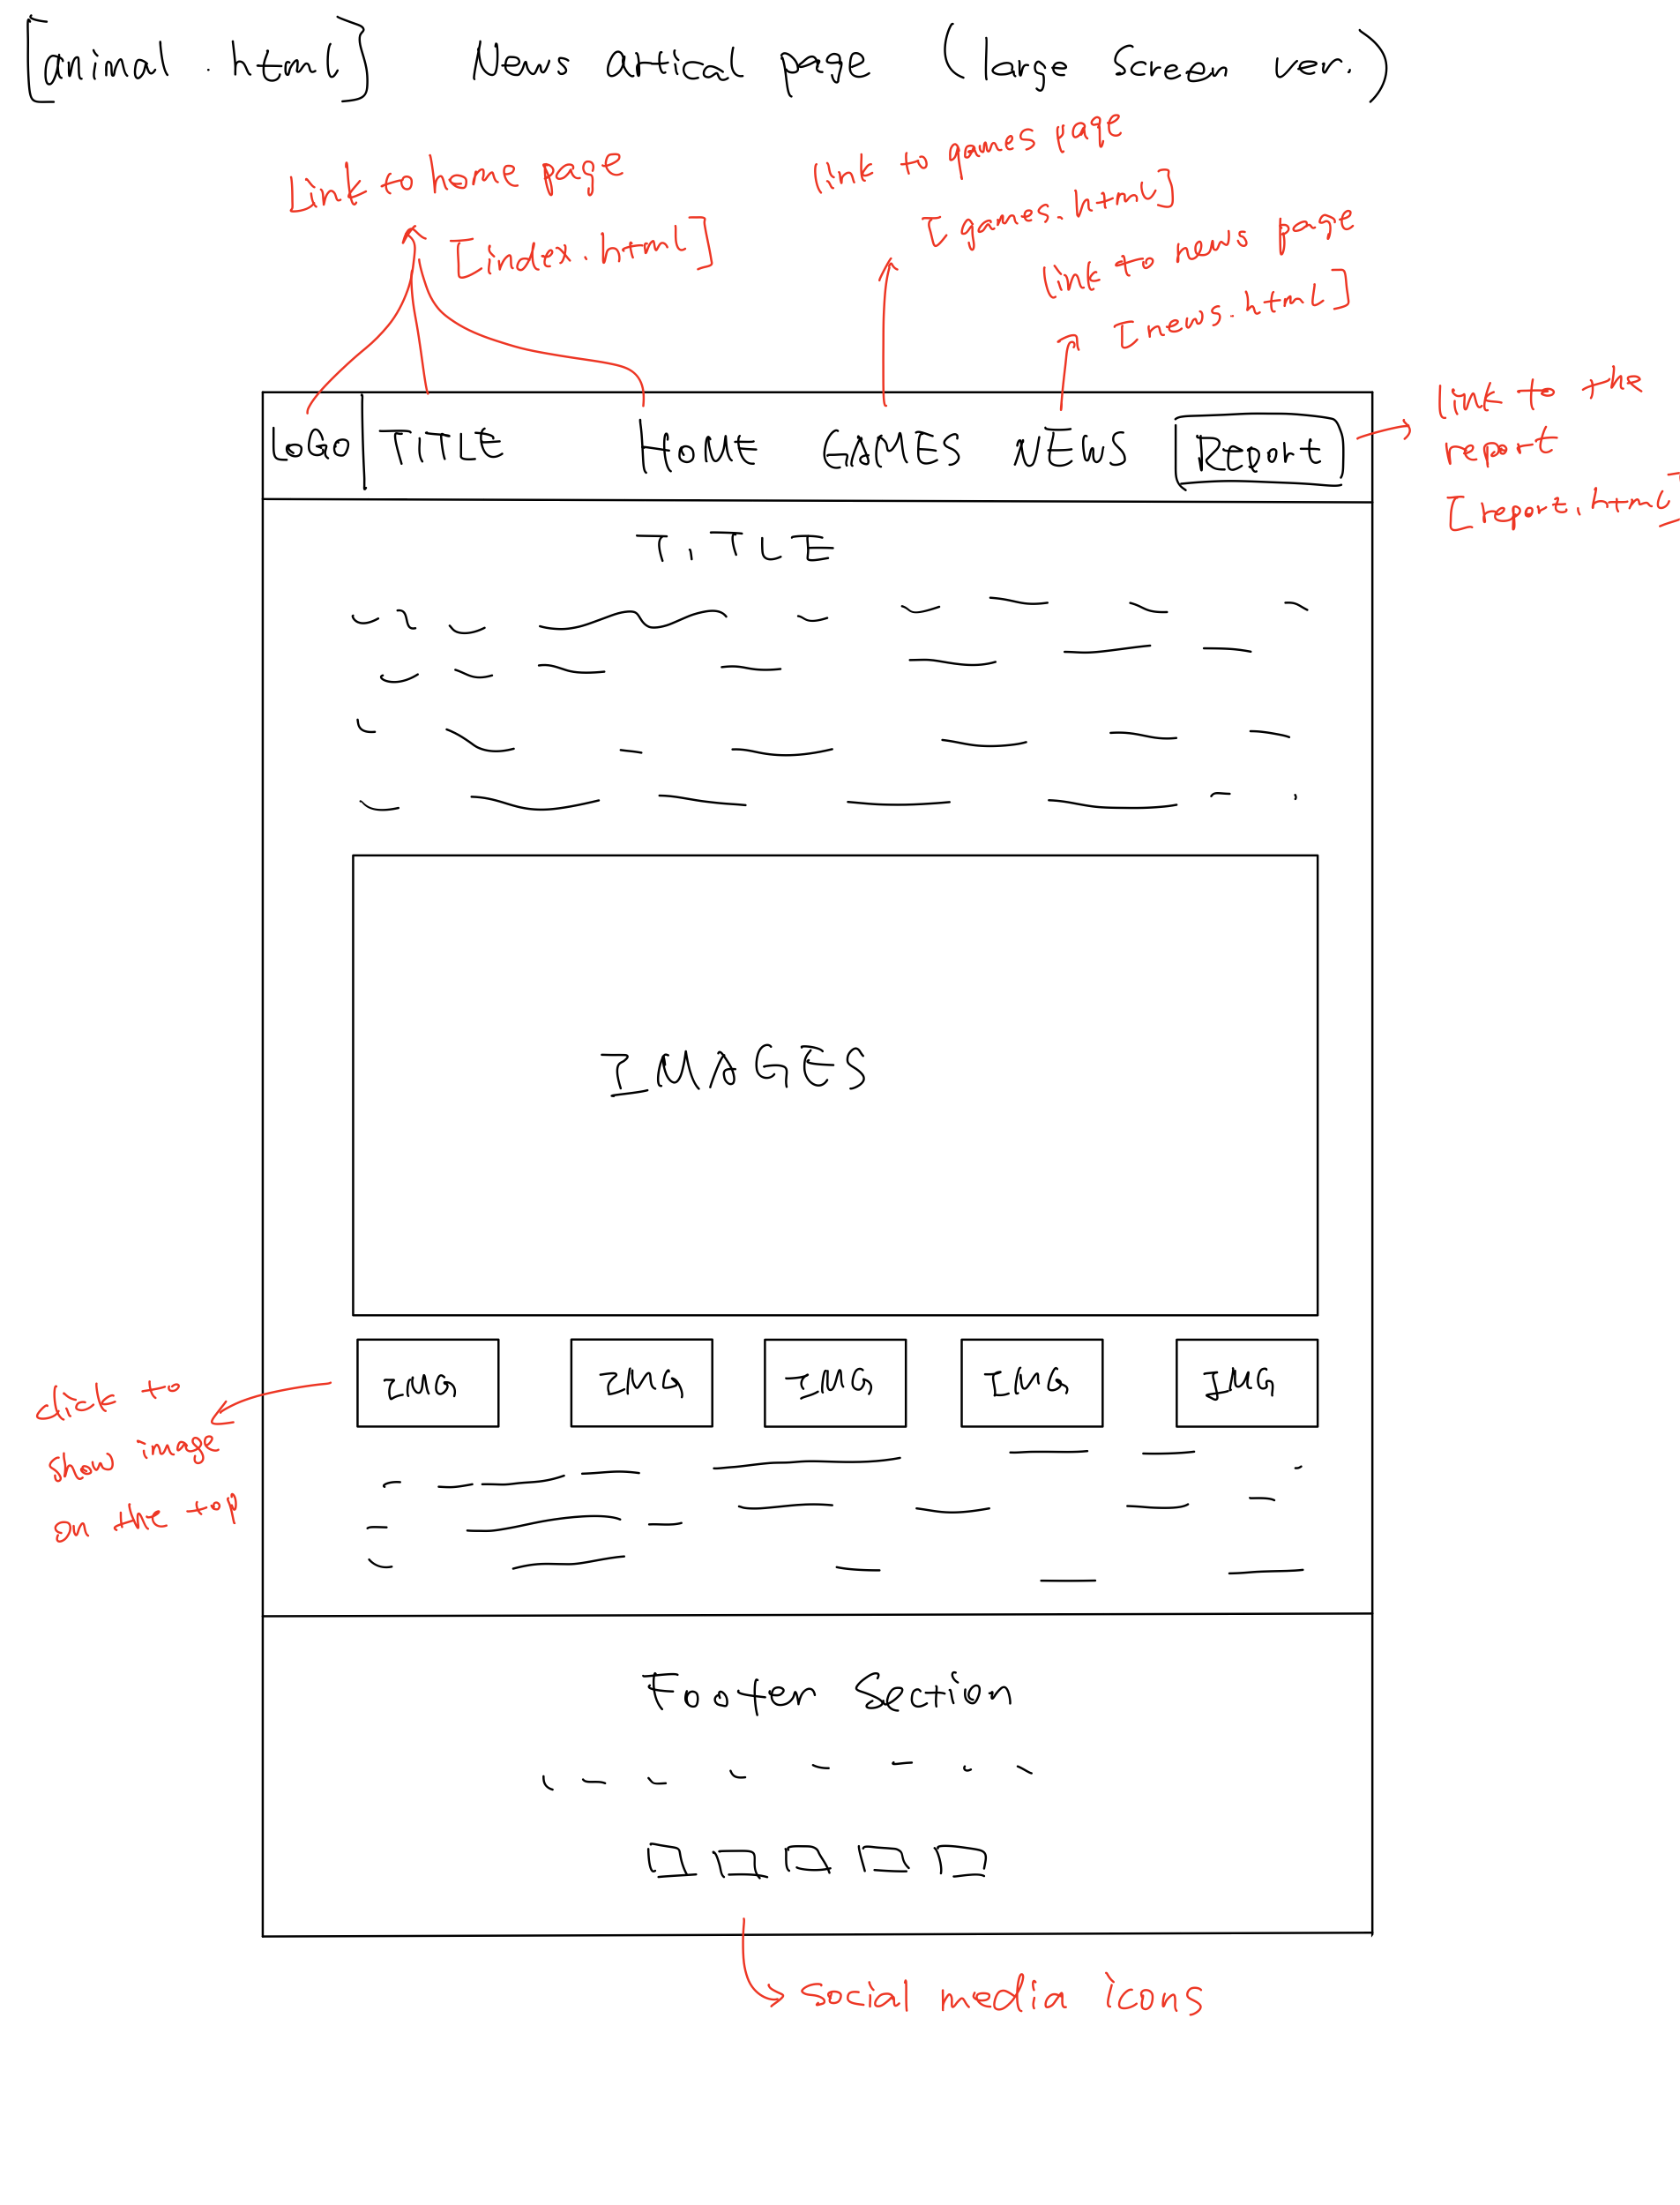 [animal.html] News artical page (large screen ver.)
Link to home page
[index.html]
link to games page
[games.html]
link to news page
[news.html]
link to the
report
[report.html]
LOGO TITLE HOME GAMES NEWS Report
TITLE
IMAGES
IMG IMG IMG IMG IMG
click to
show image
on the top
Footer Section
social media icons